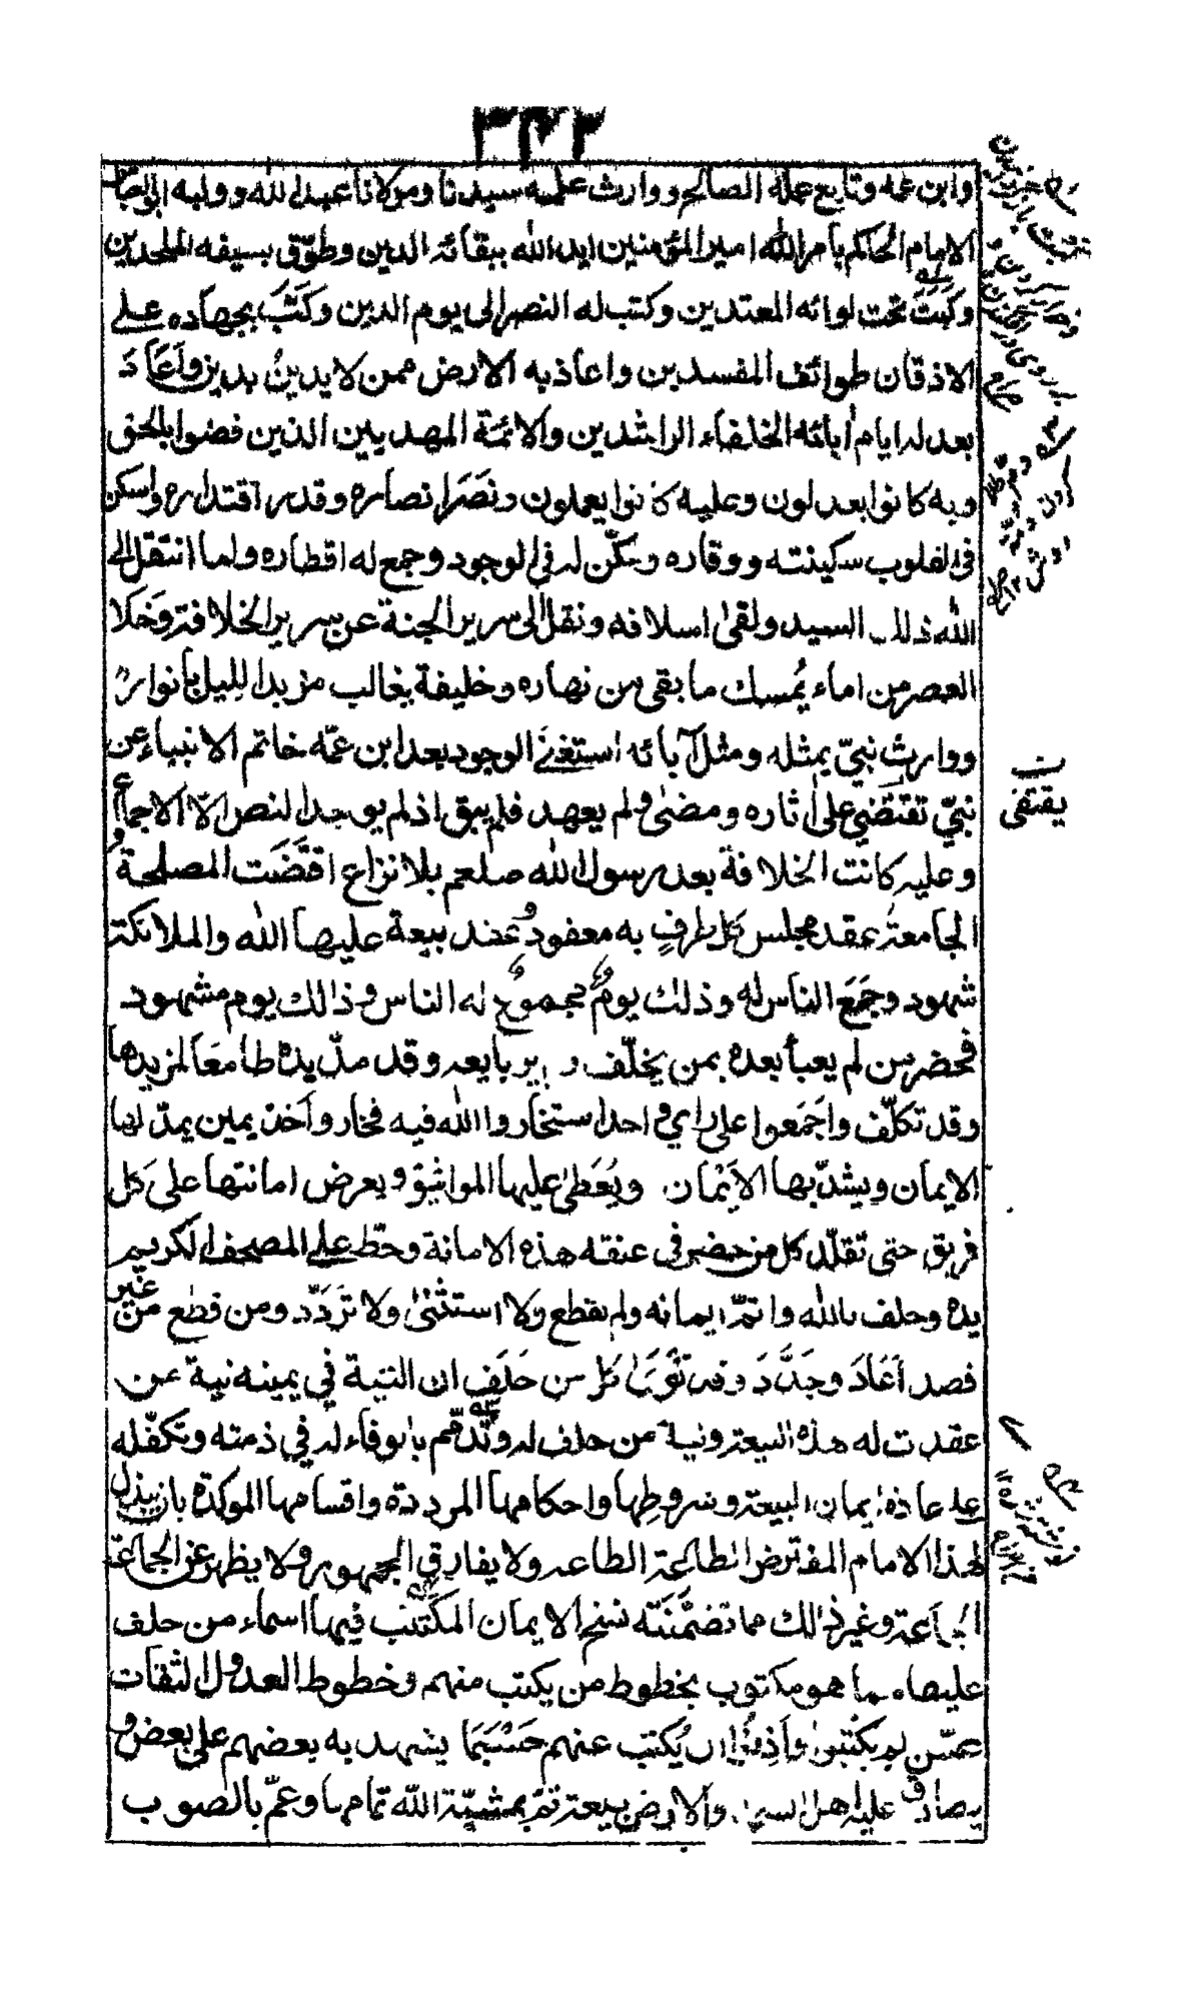 ٣٤٢
وابن عمه وتابع عمله الصالح ووارث علمه سيدنا ومولانا عبد الله ووليه ابو العباس
الامام الحاكم بامر الله امير المؤمنين ايد الله ببقائه الدين وطوّق بسيفه الملحدين
وكَبَتَ تحت لوائه المعتدين وكتب له النصر الى يوم الدين وكَبَّ بجهاده على
الاذقان طوائف المفسدين واعاذ به الارض ممن لا يدين بدين واَعَادَ
بعدله ايام اٰبائه الخلفاء الراشدين والائمة المهديين الذين قضوا بالحق
وبه كانوا يعدلون وعليه كانوا يعملون ونَصَرَ انصاره وقدر اقتداره واسكن
فى القلوب سكينته ووقاره ومكّن له فى الوجود وجمع له اقطاره ولما انتقل الى
الله ذلك السيد ولقى اسلافه ونقل الى سرير الجنة عن سرير الخلافة وخَلا
العصر من امام يُمسك ما بقى من نهاره وخليفة يغالب مزبد الليل بانواره
ووارث نبيّ بمثله ومثل آبائه استغنى الوجود بعد ابن عمّه خاتم الانبياء عن
نبيّ تقتضي على اٰثاره ومضى ولم يعهد فلم يبق اذ لم يوجد النص الّا الاجماع
وعليه كانت الخلافة بعد رسول الله صلعم بلا نزاع اقتَضَت المصلحةُ
الجامعةُ عقد مجلس كل طرفٍ به معقود وعقد بيعة عليها الله والملائكة
شهود وجَمَعَ الناس له وذلك يومٌ مجموعٌ له الناس وذالك يوم مشهود
فحضر من لم يعبأ بعده بمن يخلّف و بايعه وقد مدّ يده طامعَا لمزيدها
وقد تكلّف واجَمَعوا على راي واحد استخاروا الله فيه فخار واَخذ يمين يمدّ لها
الايمان ويشدّ بها الاَيْمان ويُعَطىٰ عليها المواثيق ويعرض امانتها على كل
فريق حتى تقلّد كل من حضر فى عنقه هذه الامانة وحَطّ على المصحف الكريم
يده وحلف بالله واتمّ ايمانه ولم يقطع ولا استثنىٰ ولا تَردّد ومن قطع من غير
قصد اَعَادَ وجَدَّدَ وقد نَوَى كل من حَلَف ان النية في يمينه نية من
عقدت له هذه البيعة ونية من حلف له وتَذمّم بالوفاء له في ذمته وتكفّله
على عادة ايمان البيعة وشروطها واحكامها المرددة واقسامها الموكدة بان يبذل
لهذا الامام المفترض الطاعة الطاعة ولا يفارق الجمهور ولا يظهر عن الجماعة
الجماعة وغير ذالك مما تضمّنَته نسخ الايمان المكَتتب فيها اسماء من حلف
عليها مما هو مكتوب بخطوط من يكتب منهم وخطوط العدول الثقات
عمّن لم يكتبوا واَذِنُوا ان يُكتب عنهم حَسَبَمَا يشهد به بعضهم على بعض و
يصادق عليه اهل السماء والارض بيعة تمّ بمشيّة الله تمامها وعمّ بالصوب
ن
يقتفى